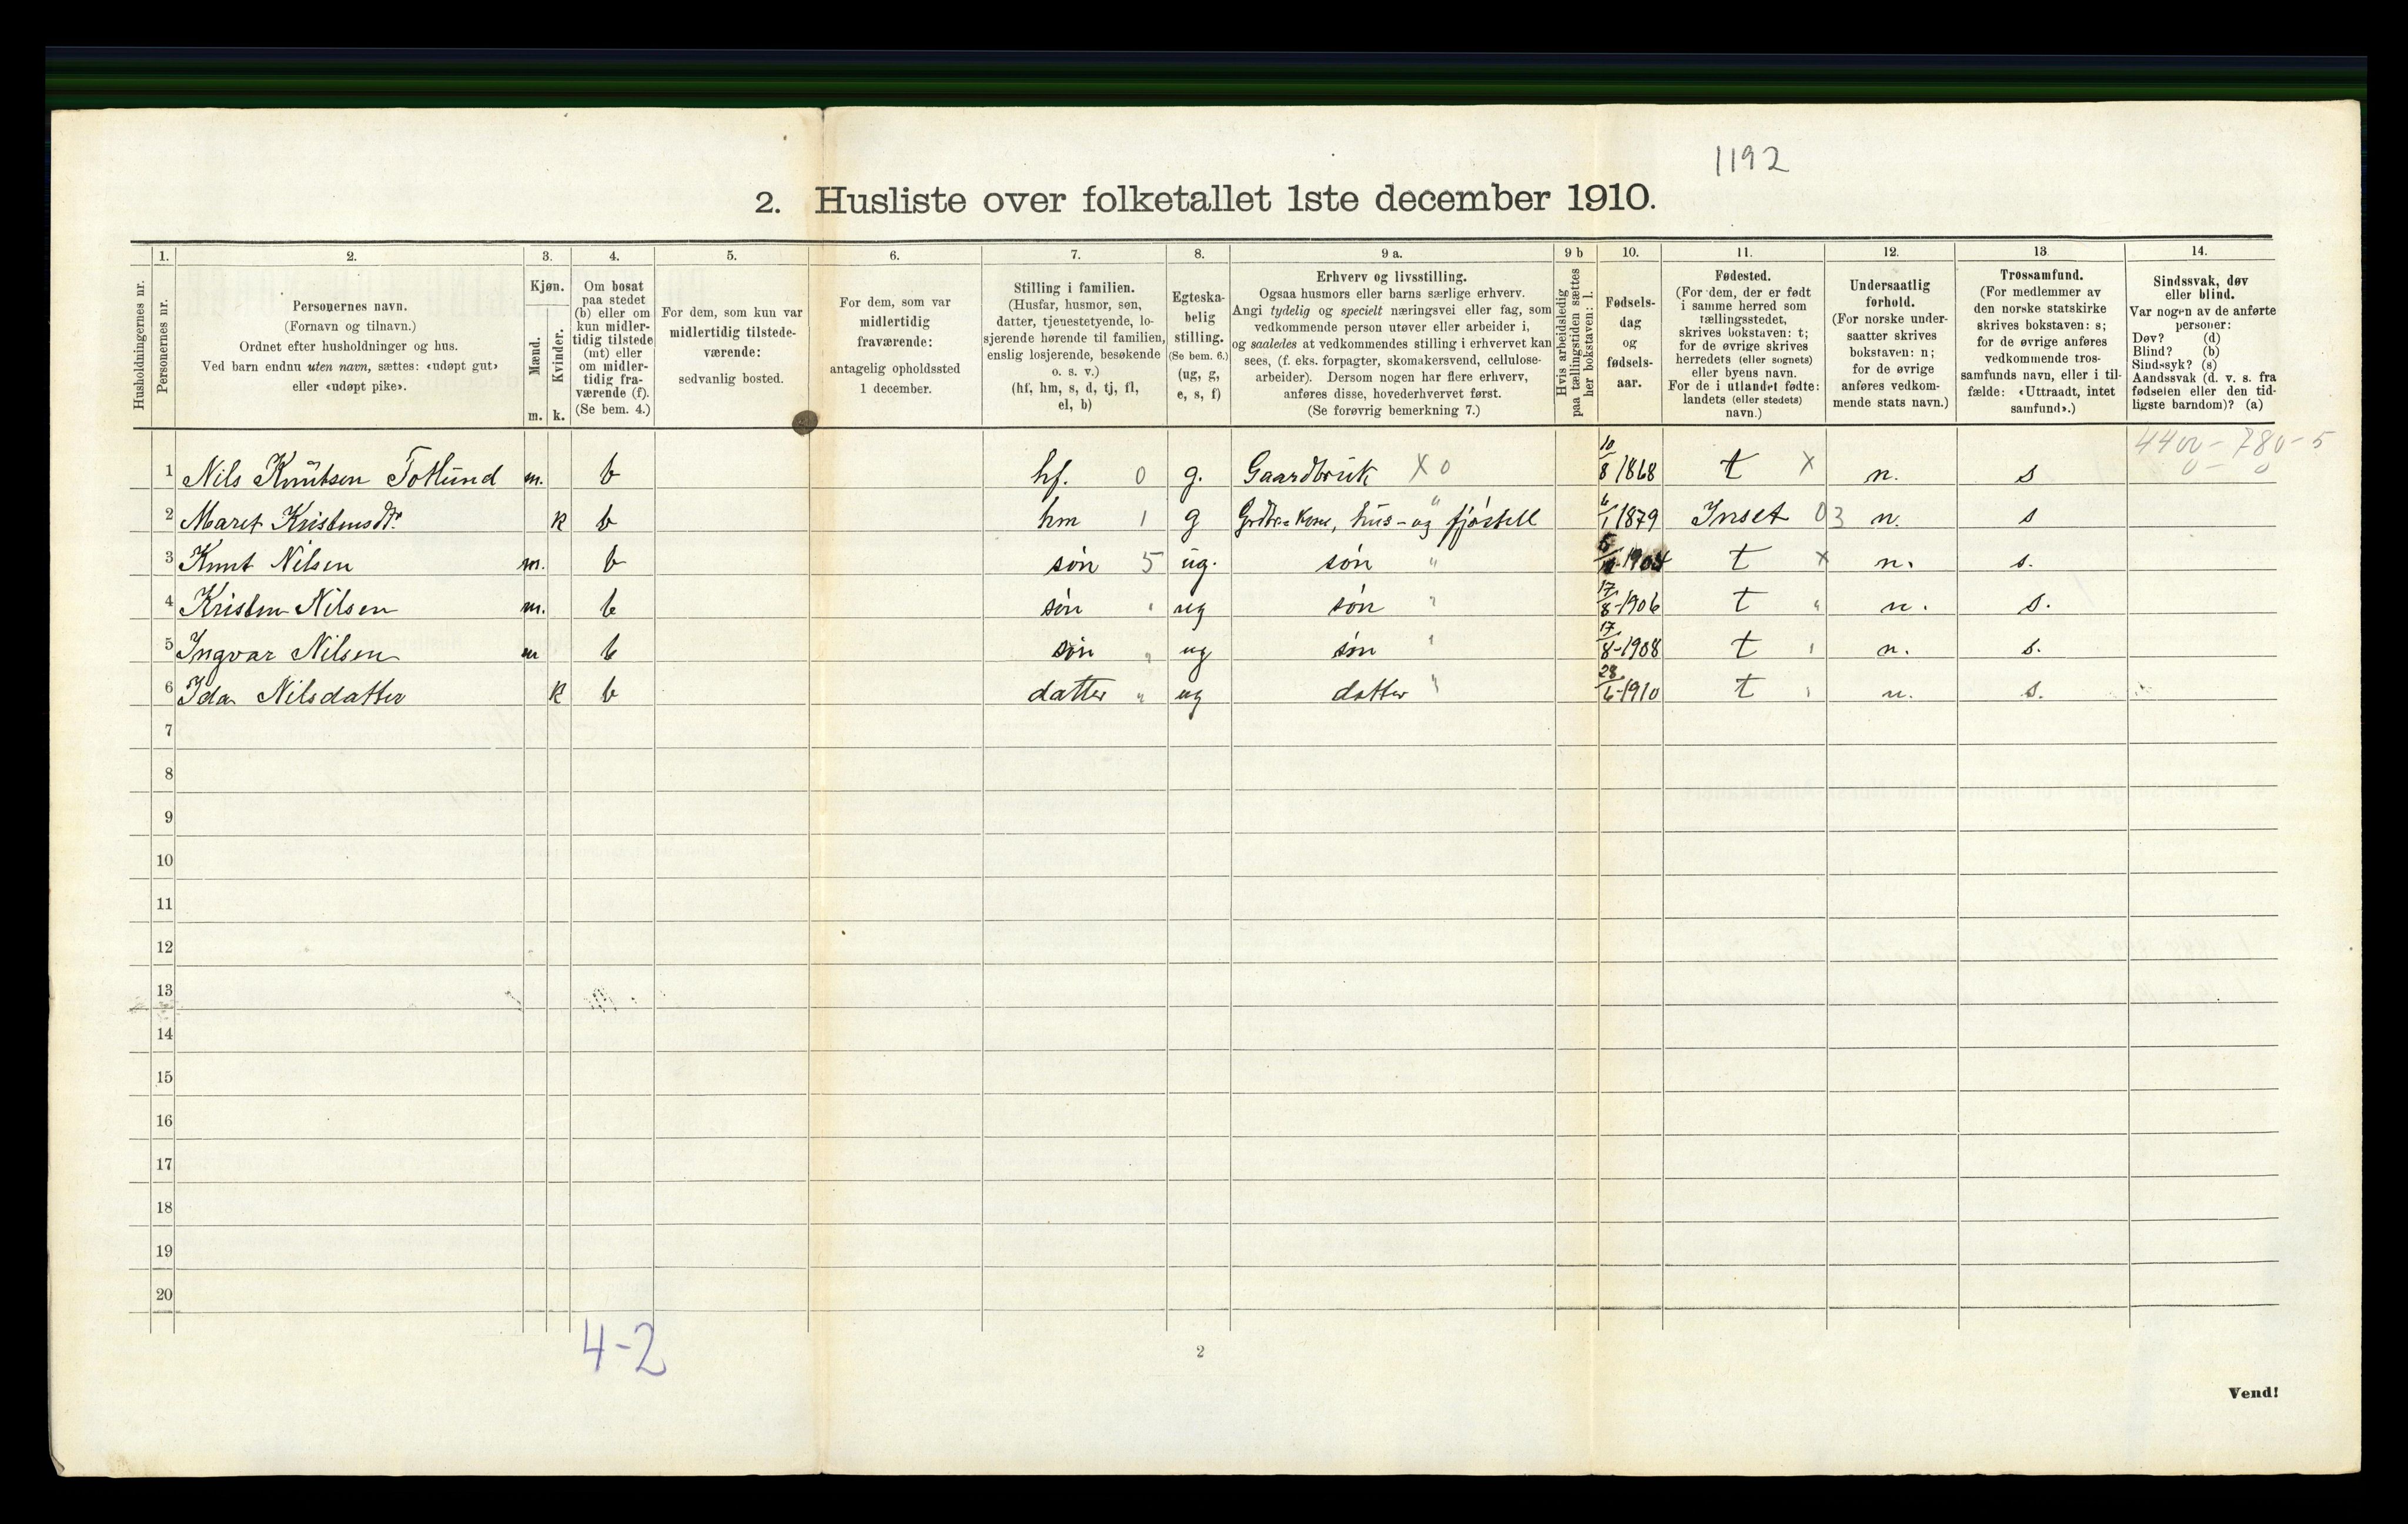 1192
2. Husliste over folketallet 1ste december 1910.
Husholdningernes nr.
1.
Personernes nr.
2.
Personernes navn.
(Fornavn og tilnavn.)
Ordnet efter husholdninger og hus.
Ved barn endnu uten navn, sættes: «udøpt gut»
eller «udøpt pike».
3.
Kjøn.
Mænd. Kvinder.
m. k.
4.
Om bosat
paa stedet
(b) eller om
kun midler-
tidig tilstede
(mt) eller
om midler-
tidig fra-
værende (f).
(Se bem. 4.)
5.
For dem, som kun var
midlertidig tilstede-
værende:
sedvanlig bosted.
6.
For dem, som var
midlertidig
fraværende:
antagelig opholdssted
1 december.
7.
Stilling i familien.
(Husfar, husmor, søn,
datter, tjenestetyende, lo-
sjerende hørende til familien,
enslig losjerende, besøkende
o. s. v.)
(hf, hm, s, d, tj, fl,
el, b)
8.
Egteska-
belig
stilling.
(Se bem. 6.)
(ug, g,
e, s, f)
9 a.
Erhverv og livsstilling.
Ogsaa husmors eller barns særlige erhverv.
Angi tydelig og specielt næringsvei eller fag, som
vedkommende person utøver eller arbeider i,
og saaledes at vedkommendes stilling i erhvervet kan
sees, (f. eks. forpagter, skomakersvend, cellulose-
arbeider). Dersom nogen har flere erhverv,
anføres disse, hovederhvervet først.
(Se forøvrig bemerkning 7.)
9 b
Hvis arbeidsledig
paa tællingstiden sættes
her bokstaven: l.
10.
Fødsels-
dag
og
fødsels-
aar.
11.
Fødested.
(For dem, der er født
i samme herred som
tællingsstedet,
skrives bokstaven: t;
for de øvrige skrives
herredets (eller sognets)
eller byens navn.
For de i utlandet fødte:
landets (eller stedets)
navn.)
12.
Undersaatlig
forhold.
(For norske under-
saatter skrives
bokstaven: n;
for de øvrige
anføres vedkom-
mende stats navn.)
13
Trossamfund.
(For medlemmer av
den norske statskirke
skrives bokstaven: s;
for de øvrige anføres
vedkommende tros-
samfunds navn, eller i til-
fælde: «Uttraadt, intet
samfund».)
14.
Sindssvak, døv
eller blind.
Var nogen av de anførte
personer:
Døv? (d)
Blind? (b)
Sindssyk? (s)
Aandssvak (d. v. s. fra
fødselen eller den tid-
ligste barndom)? (a)
4400 - 780 - 5
0 - 0
1 Nils Knutsen Totlund m. b hf. 0 g. Gaardbruk X 0 10/8 1868 t X n. s
2 Maret Kristensdtr. k b hm 1 g Grdbr= Kone, hus- og fjøsstell " 6/1 1879 Inset 03 n. s
3 Knut Nilsen m. b søn 5 ug. søn " t X n. s.
4 Kristen Nilsen m. b søn " ug søn " 17/8-1906 t " n. s.
5 Ingvar Nilsen m b søn " ug søn " 17/8-1908 t " n. s.
6 Ida Nilsdatter k b datter " ug datter " 28/6-1910 t " n. s.
7
8
9
10
11
12
13
14
15
16
17
18
19
20
4-2
2
Vend!